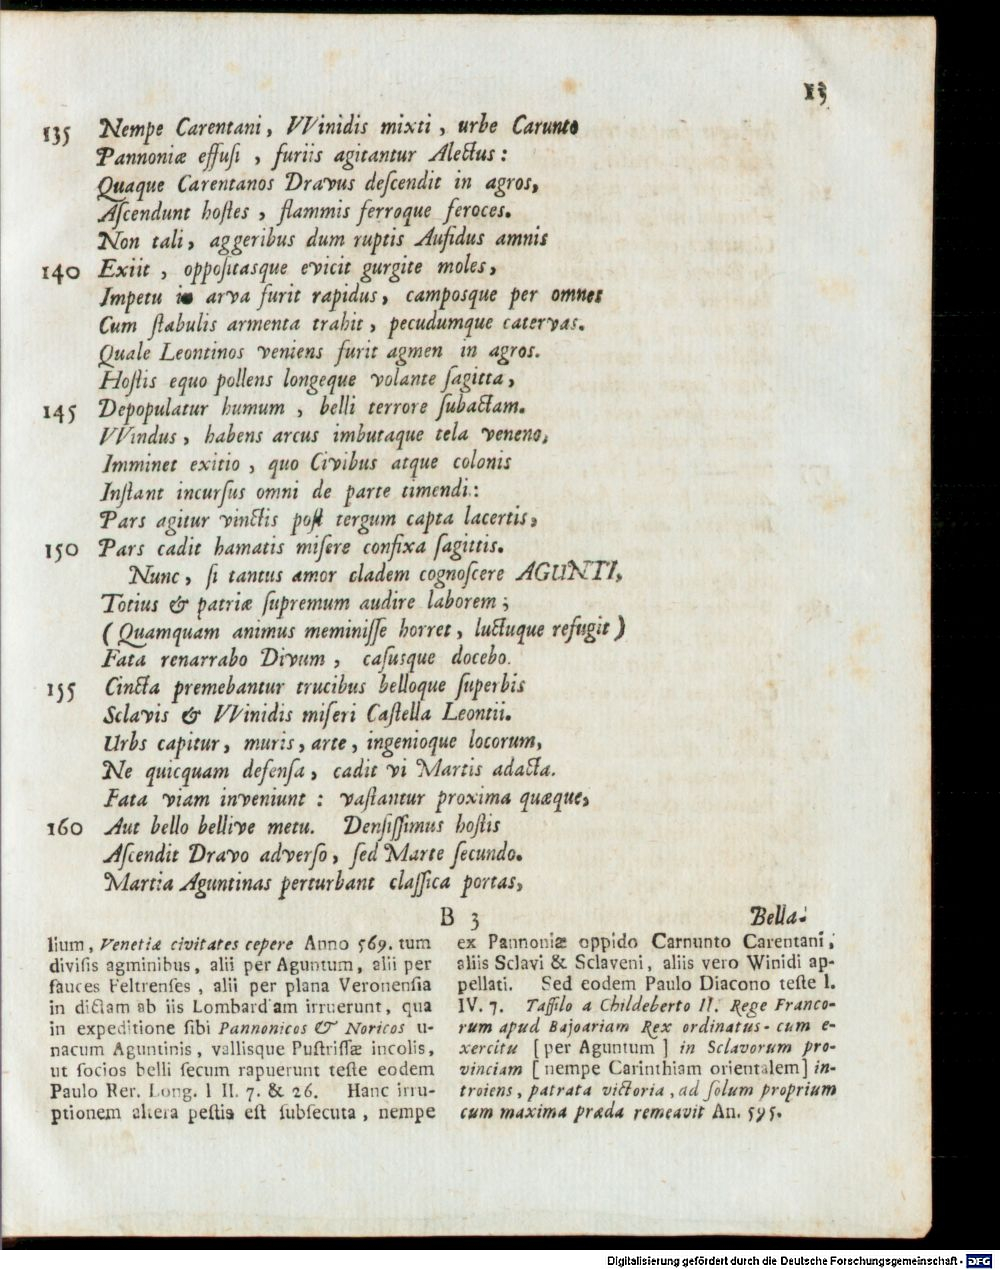 13
135 Nempe Carentani, VVinidis mixti, urbe Carunto
Pannoniæ effusi, furiis agitantur Alectus:
Quaque Carentanos Dravus descendit in agros,
Ascendunt hostes, flammis ferroque feroces.
Non tali, aggeribus dum ruptis Aufidus amnis
140 Exiit, oppositasque evicit gurgite moles,
Impetu in arva furit rapidus, camposque per omnes
Cum stabulis armenta trahit, pecudumque catervas.
Quale Leontinos veniens furit agmen in agros.
Hostis equo pollens longeque volante sagitta,
145 Depopulatur humum, belli terrore subactam.
VVindus, habens arcus imbutaque tela veneno,
Imminet exitio, quo Civibus atque colonis
Instant incursus omni de parte timendi:
Pars agitur vinctis post tergum capta lacertis,
150 Pars cadit hamatis misere confixa sagittis.
Nunc, si tantus amor cladem cognoscere AGUNTI,
Totius & patriæ supremum audire laborem;
(Quamquam animus meminisse horret, luctuque refugit)
Fata renarrabo Divum, casusque docebo.
155 Cincta premebantur trucibus belloque superbis
Sclavis & VVinidis miseri Castella Leontii.
Urbs capitur, muris, arte, ingenioque locorum,
Ne quicquam defensa, cadit vi Martis adacta.
Fata viam inveniunt: vastantur proxima quæque,
160 Aut bello bellive metu. Densissimus hostis
Ascendit Dravo adverso, sed Marte secundo.
Martia Aguntinas perturbant classica portas,
B 3 Bella-
lium, Venetiæ civitates cepere Anno 569. tum
divisis agminibus, alii per Aguntum, alii per
fauces Feltrenses, alii per plana Veronensia
in dictam ab iis Lombardiam irruerunt, qua
in expeditione sibi Pannonicos & Noricos u-
nacum Aguntinis, vallisque Pustrissæ incolis,
ut socios belli secum rapuerunt teste eodem
Paulo Rer. Long. l II. 7. & 26. Hanc irru-
ptionem altera pestis est subsecuta, nempe
ex Pannoniæ oppido Carnunto Carentani,
aliis Sclavi & Sclaveni, aliis vero Winidi ap-
pellati. Sed eodem Paulo Diacono teste l.
IV. 7. Tassilo a Childeberto II. Rege Franco-
rum apud Bajoariam Rex ordinatus - cum e-
xercitu [per Aguntum] in Sclavorum pro-
vinciam [nempe Carinthiam orientalem] in-
troiens, patrata victoria, ad solum proprium
cum maxima præda remeavit An. 595.
Digitalisierung gefördert durch die Deutsche Forschungsgemeinschaft - DFG